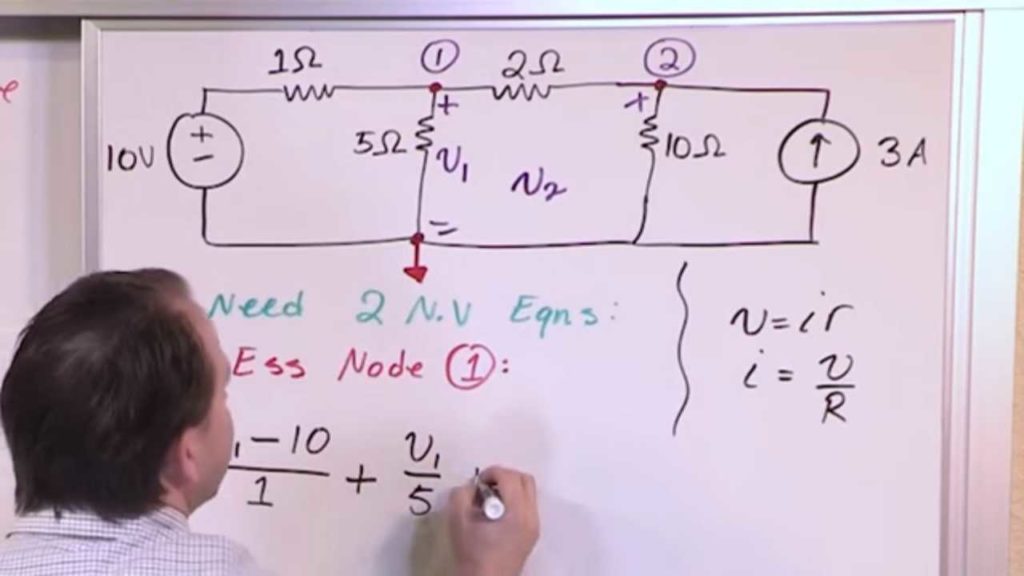 e
1Ω ① 2Ω ②
+ +
10V + − 5Ω υ₁ υ₂ 10Ω ↑ 3A
−
Need 2 N.V Eqns:
Ess Node ①:
υ=ir
i = υ/R
₁−10/1 + υ₁/5